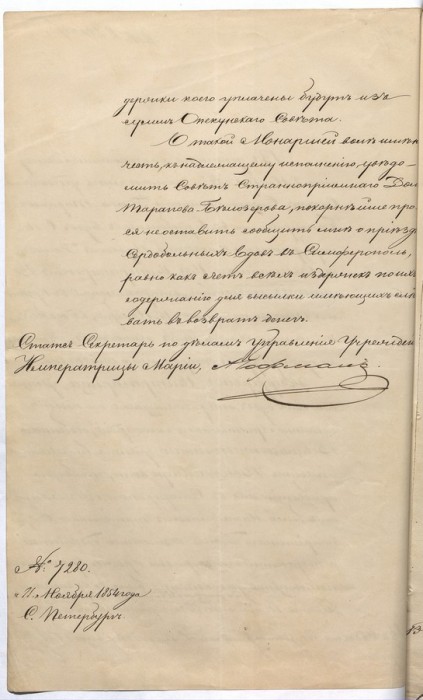 держки коего уплачены будутъ изъ
суммъ Опекунскаго Совѣта.
О такой Монаршей волѣ имѣю
честь, къ надлежащему исполненію, увѣдо-
мить Совѣтъ Страннопріимнаго Дома
Таранова-Бѣлозерова, покорнѣйше про-
ся неоставить сообщить мнѣ о пріѣздѣ
Сердобольныхъ Вдовъ въ Симферополь,
равно какъ счетъ всѣхъ издержекъ по ихъ
содержанію для высылки слѣдующихъ
въ возвратъ денегъ.
Статсъ Секретарь по дѣламъ Управленія Учрежденій
Императрицы Маріи, Гофманъ.
№ 7280.
Ноября 1854 года
С. Петербургъ